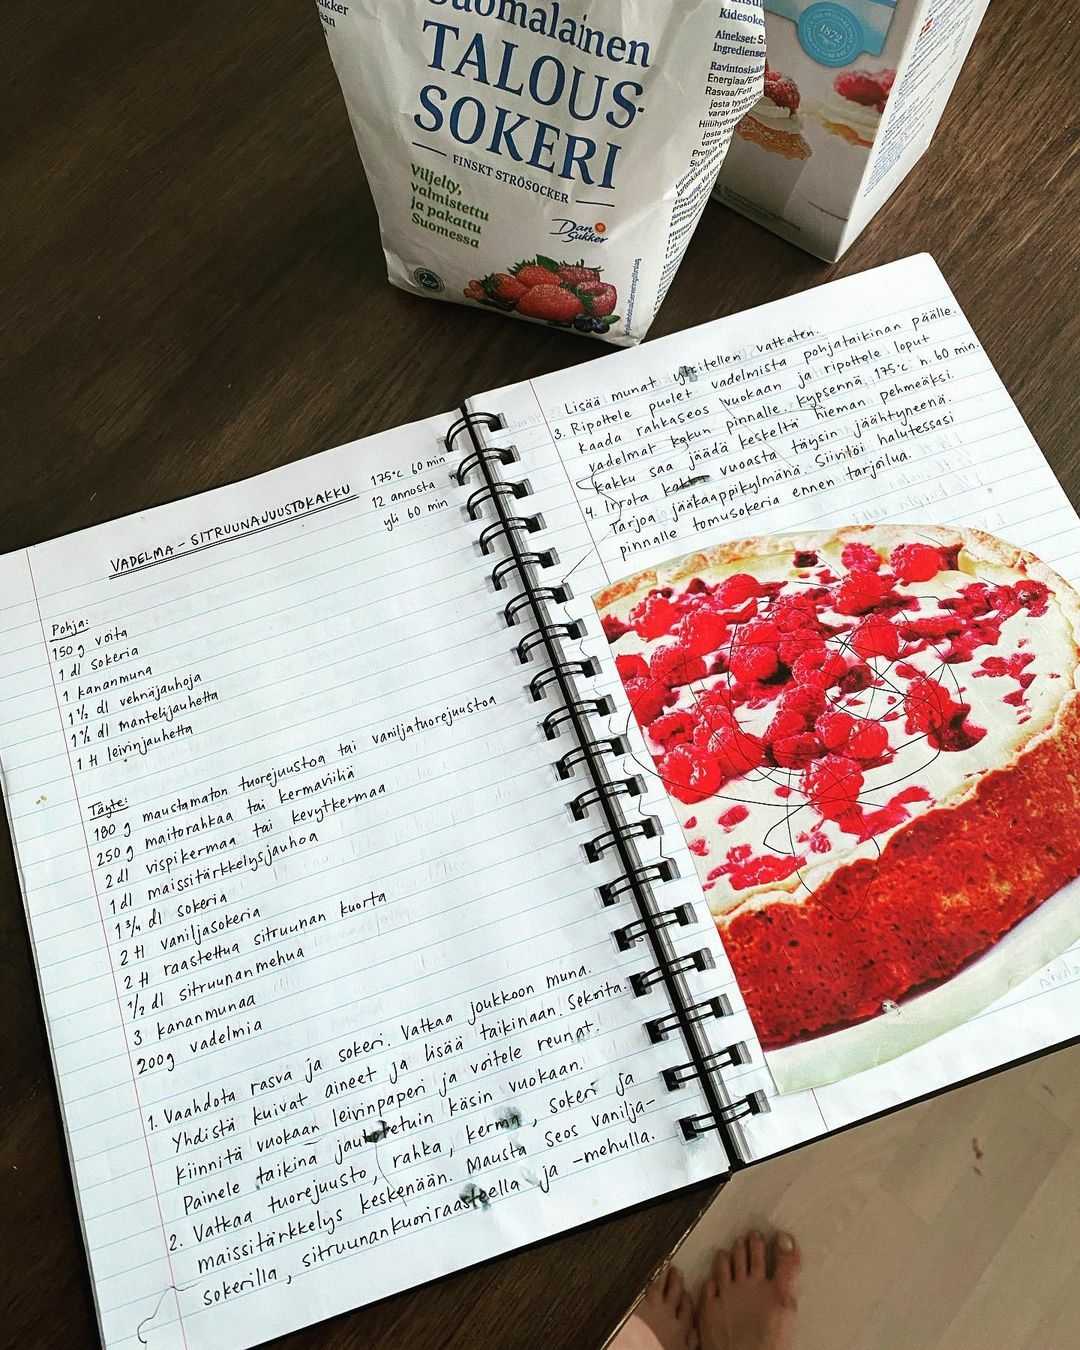 Suomalainen
TALOUS-
SOKERI
FINSKT STRÖSOCKER
Viljelty,
valmistettu
ja pakattu
Suomessa
Dan
Sukker
Kidesoke
Ainekset: S
Ingrediense
Ravintosisä
Energiaa/Ene
Rasvaa/Fett
josta tyydytty
varav mättat
Hiilihydraa
josta so
varav
1872
VADELMA - SITRUUNAJUUSTOKAKKU
175°c 60 min
12 annosta
yli 60 min
Pohja:
150 g voita
1 dl sokeria
1 kananmuna
1 ½ dl vehnäjauhoja
1 ½ dl mantelijauhetta
1 tl leivinjauhetta
Täyte:
180 g maustamaton tuorejuustoa tai vaniljatuorejuustoa
250 g maitorahkaa tai kermaviiliä
2 dl vispikermaa tai kevytkermaa
1 dl maissitärkkelysjauhoa
1 ¾ dl sokeria
2 tl vaniljasokeria
2 tl raastettua sitruunan kuorta
½ dl sitruunanmehua
3 kananmunaa
200g vadelmia
1. Vaahdota rasva ja sokeri. Vatkaa joukkoon muna.
Yhdistä kuivat aineet ja lisää taikinaan. Sekoita.
Kiinnitä vuokaan leivinpaperi ja voitele reunat.
Painele taikina jauhotetuin käsin vuokaan.
2. Vatkaa tuorejuusto, rahka, kerma, sokeri ja
maissitärkkelys keskenään. Mausta seos vanilja-
sokerilla, sitruunankuoriraasteella ja -mehulla.
Lisää munat yksitellen vatkaten.
3. Ripottele puolet vadelmista pohjataikinan päälle.
Kaada rahkaseos vuokaan ja ripottele loput
vadelmat kakun pinnalle. Kypsennä, 175°c n. 60 min.
Kakku saa jäädä keskeltä hieman pehmeäksi.
4. Irrota kakku vuoasta täysin jäähtyneenä.
Tarjoa jääkaappikylmänä. Siivilöi halutessasi
pinnalle tomusokeria ennen tarjoilua.